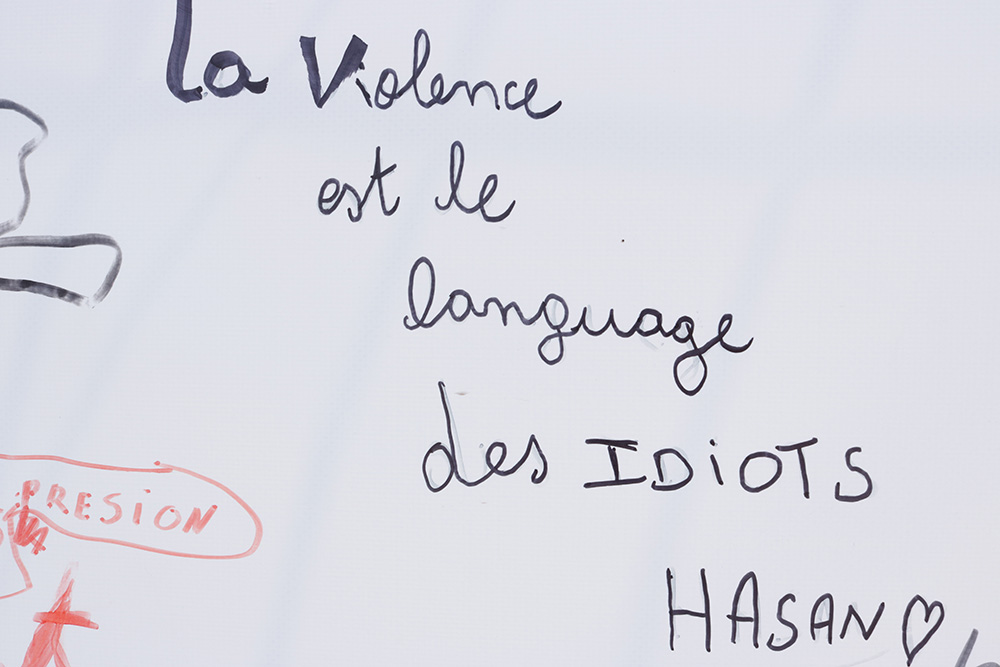 la Violence
est le
language
des IDiOTS
PRESiON
HASAN